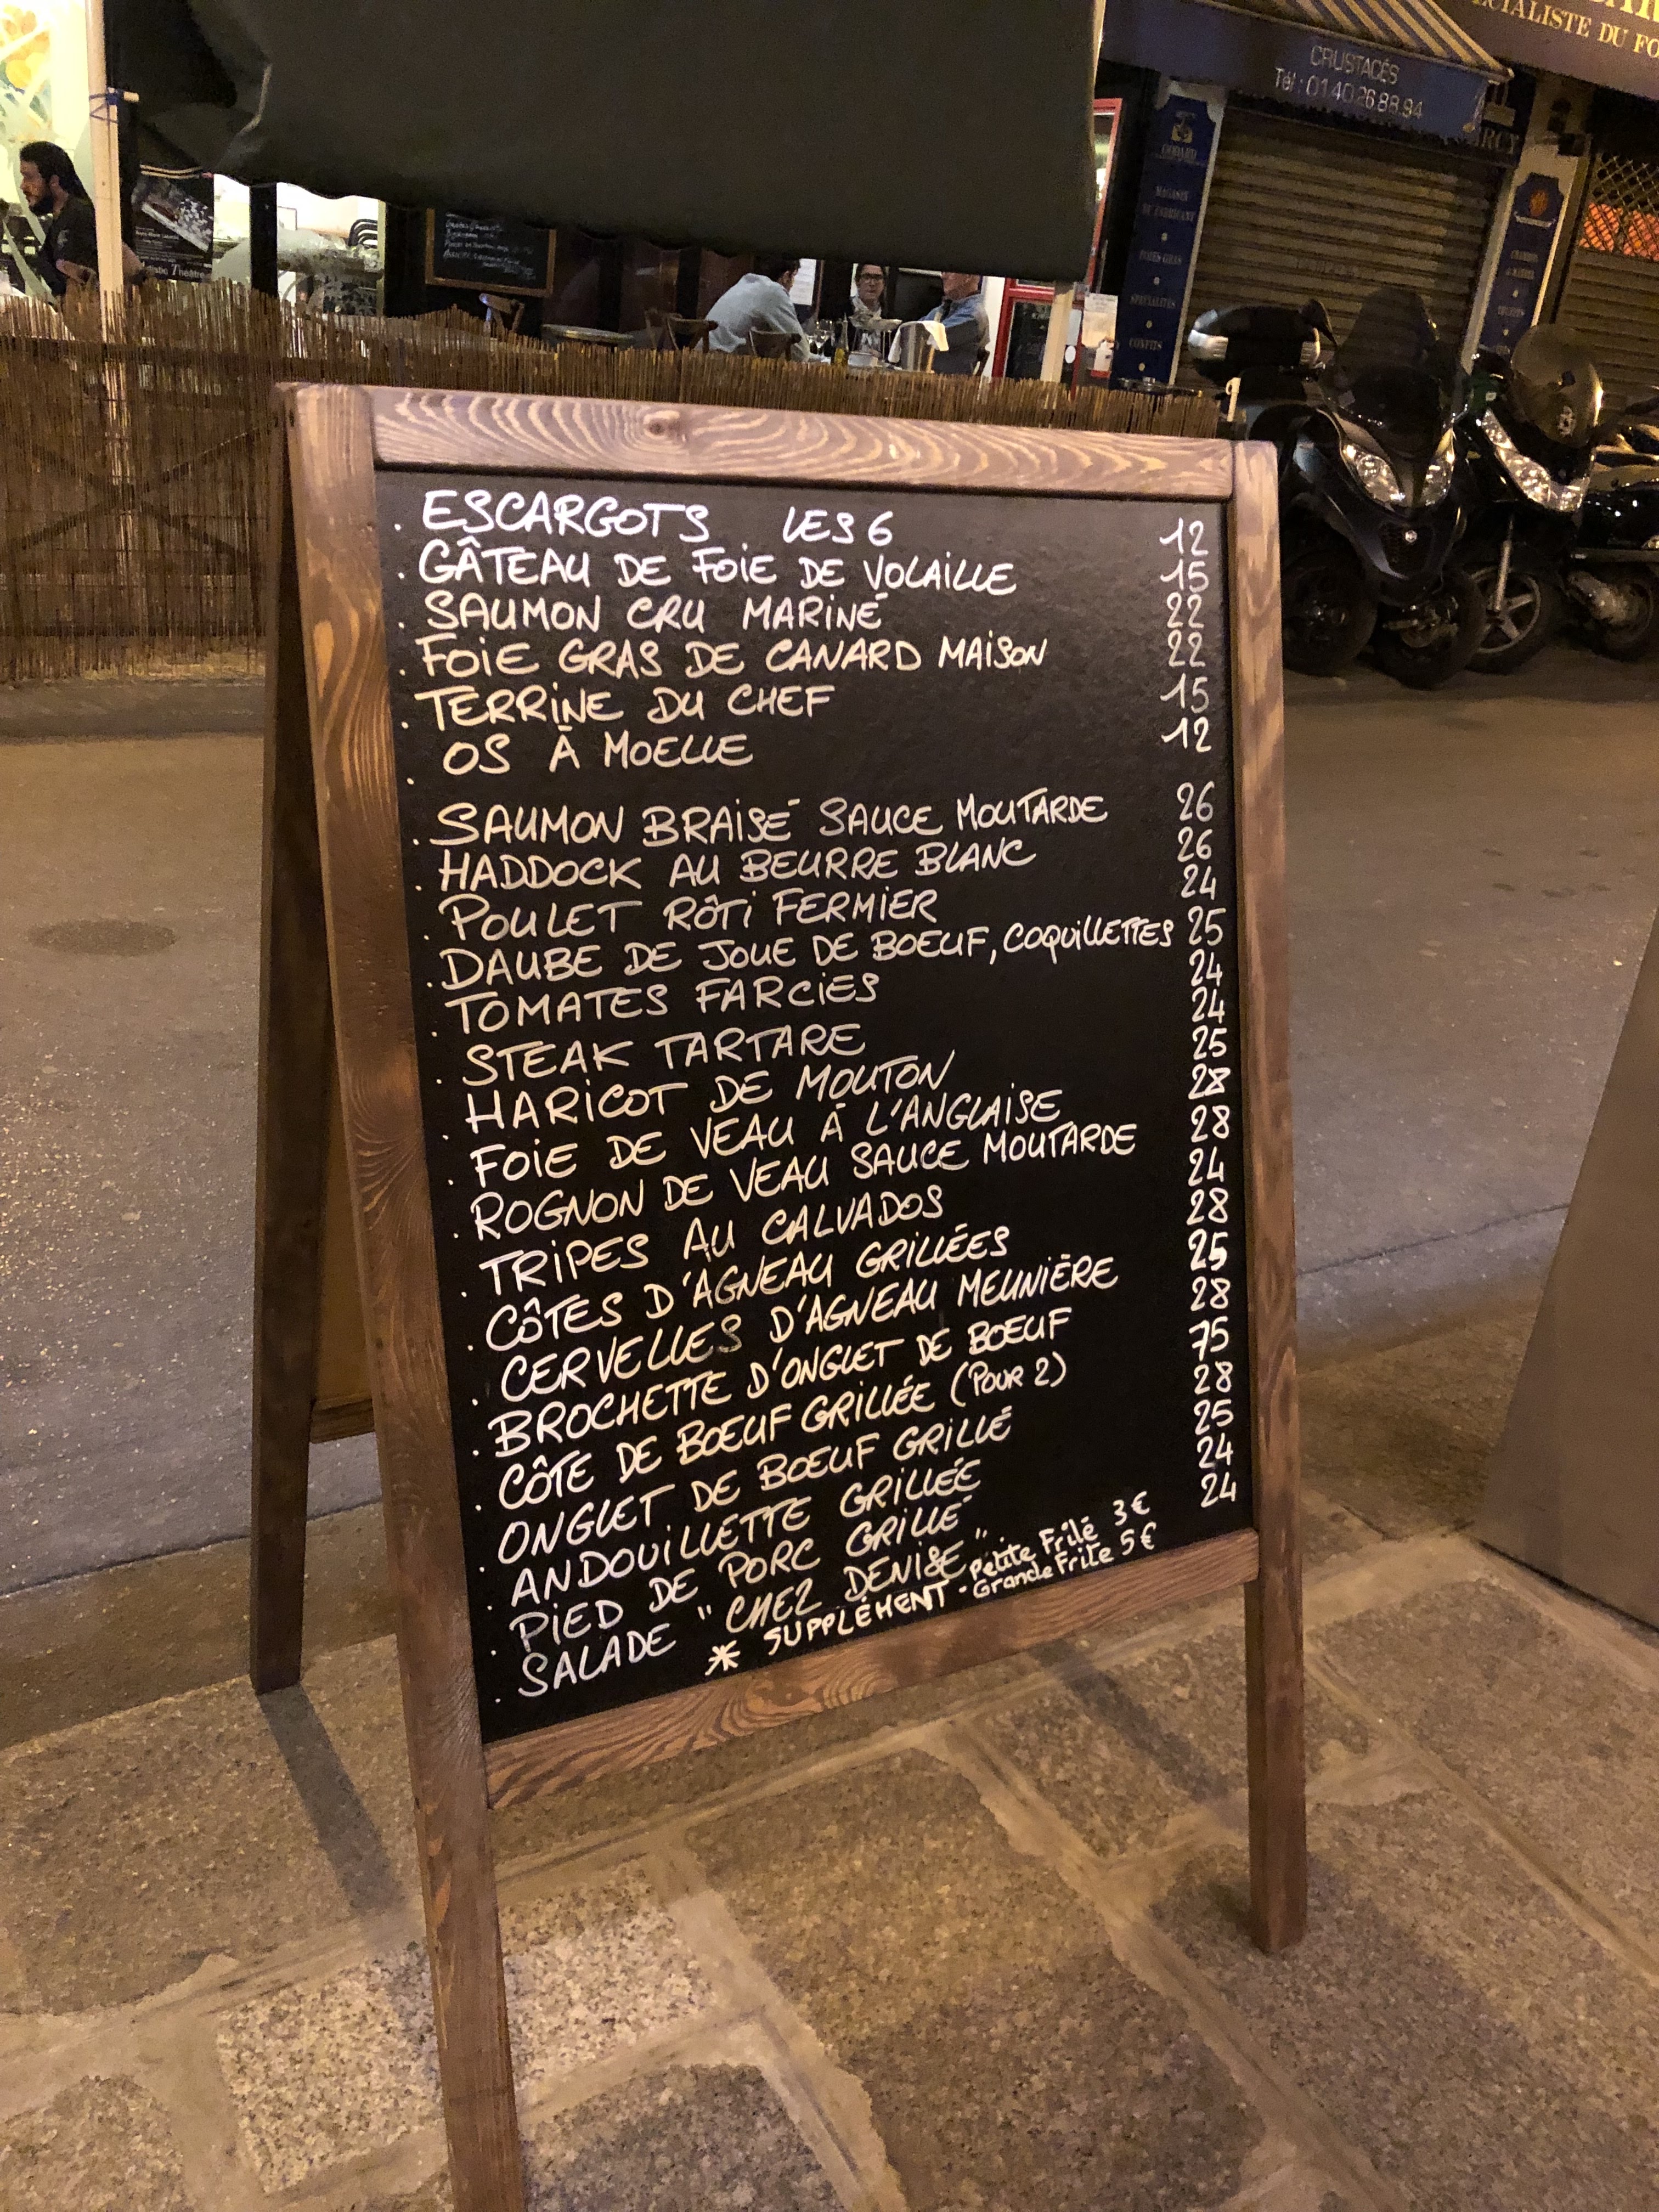 CRUSTACÉS
Tél : 01.40.26.88.94
CIALISTE DU FO
GODARD
MAGASIN
DU FABRICANT
FOIES GRAS
SPÉCIALITÉS
CONFITS
Théâtre
. ESCARGOTS LES 6 12
. GÂTEAU DE FOIE DE VOLAILLE 15
. SAUMON CRU MARINÉ 22
. FOIE GRAS DE CANARD MAISON 22
. TERRINE DU CHEF 15
. OS À MOELLE 12
. SAUMON BRAISÉ SAUCE MOUTARDE 26
. HADDOCK AU BEURRE BLANC 26
. POULET RÔTI FERMIER 24
. DAUBE DE JOUE DE BOEUF, COQUILLETTES 25
. TOMATES FARCIES 24
. STEAK TARTARE 24
. HARICOT DE MOUTON 25
. FOIE DE VEAU À L'ANGLAISE 28
. ROGNON DE VEAU SAUCE MOUTARDE 28
. TRIPES AU CALVADOS 24
. CÔTES D'AGNEAU GRILLÉES 28
. CERVELLES D'AGNEAU MEUNIÈRE 25
. BROCHETTE D'ONGLET DE BOEUF 28
. CÔTE DE BOEUF GRILLÉE (POUR 2) 75
. ONGLET DE BOEUF GRILLÉ 28
. ANDOUILLETTE GRILLÉE 25
. PIED DE PORC GRILLÉ 24
. SALADE "CHEZ DENISE" 24
* SUPPLÉMENT - Petite Frite 3€
- Grande Frite 5€